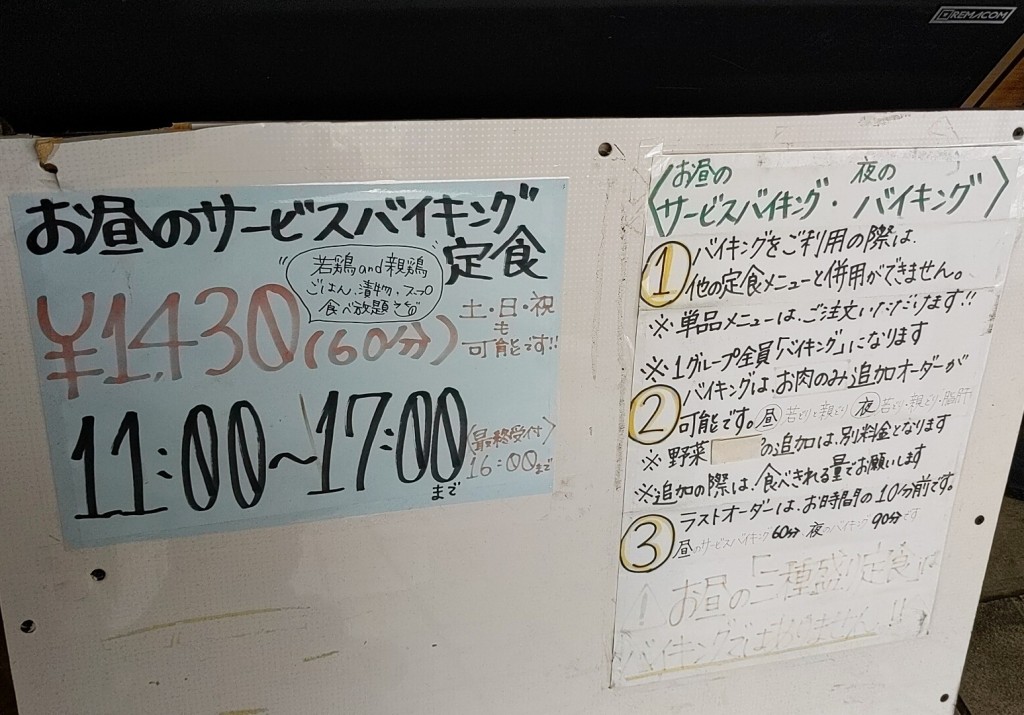 DREMACOM
お昼のサービスバイキング
定食
若鶏and親鶏
ごはん・漬物・スープ
食べ放題です
¥1,430(60分)
土・日・祝
も
可能です!!
11:00~17:00
まで
(最終受付)
16:00まで
〈お昼の サービスバイキング・夜の バイキング〉
① バイキングをご利用の際は、
他の定食メニューと併用ができません。
※単品メニューは、ご注文いただけます!!
※1グループ全員「バイキング」になります
② バイキングは、お肉のみ追加オーダーが
可能です。昼 若どりと親どり 夜 若どり・親どり・脂肝
※野菜 の追加は、別料金となります
※追加の際は、食べきれる量でお願いします
③ ラストオーダーは、お時間の10分前です。
昼のサービスバイキング60分 夜のバイキング90分です
お昼の「三種盛り定食」は
バイキングではありません!!